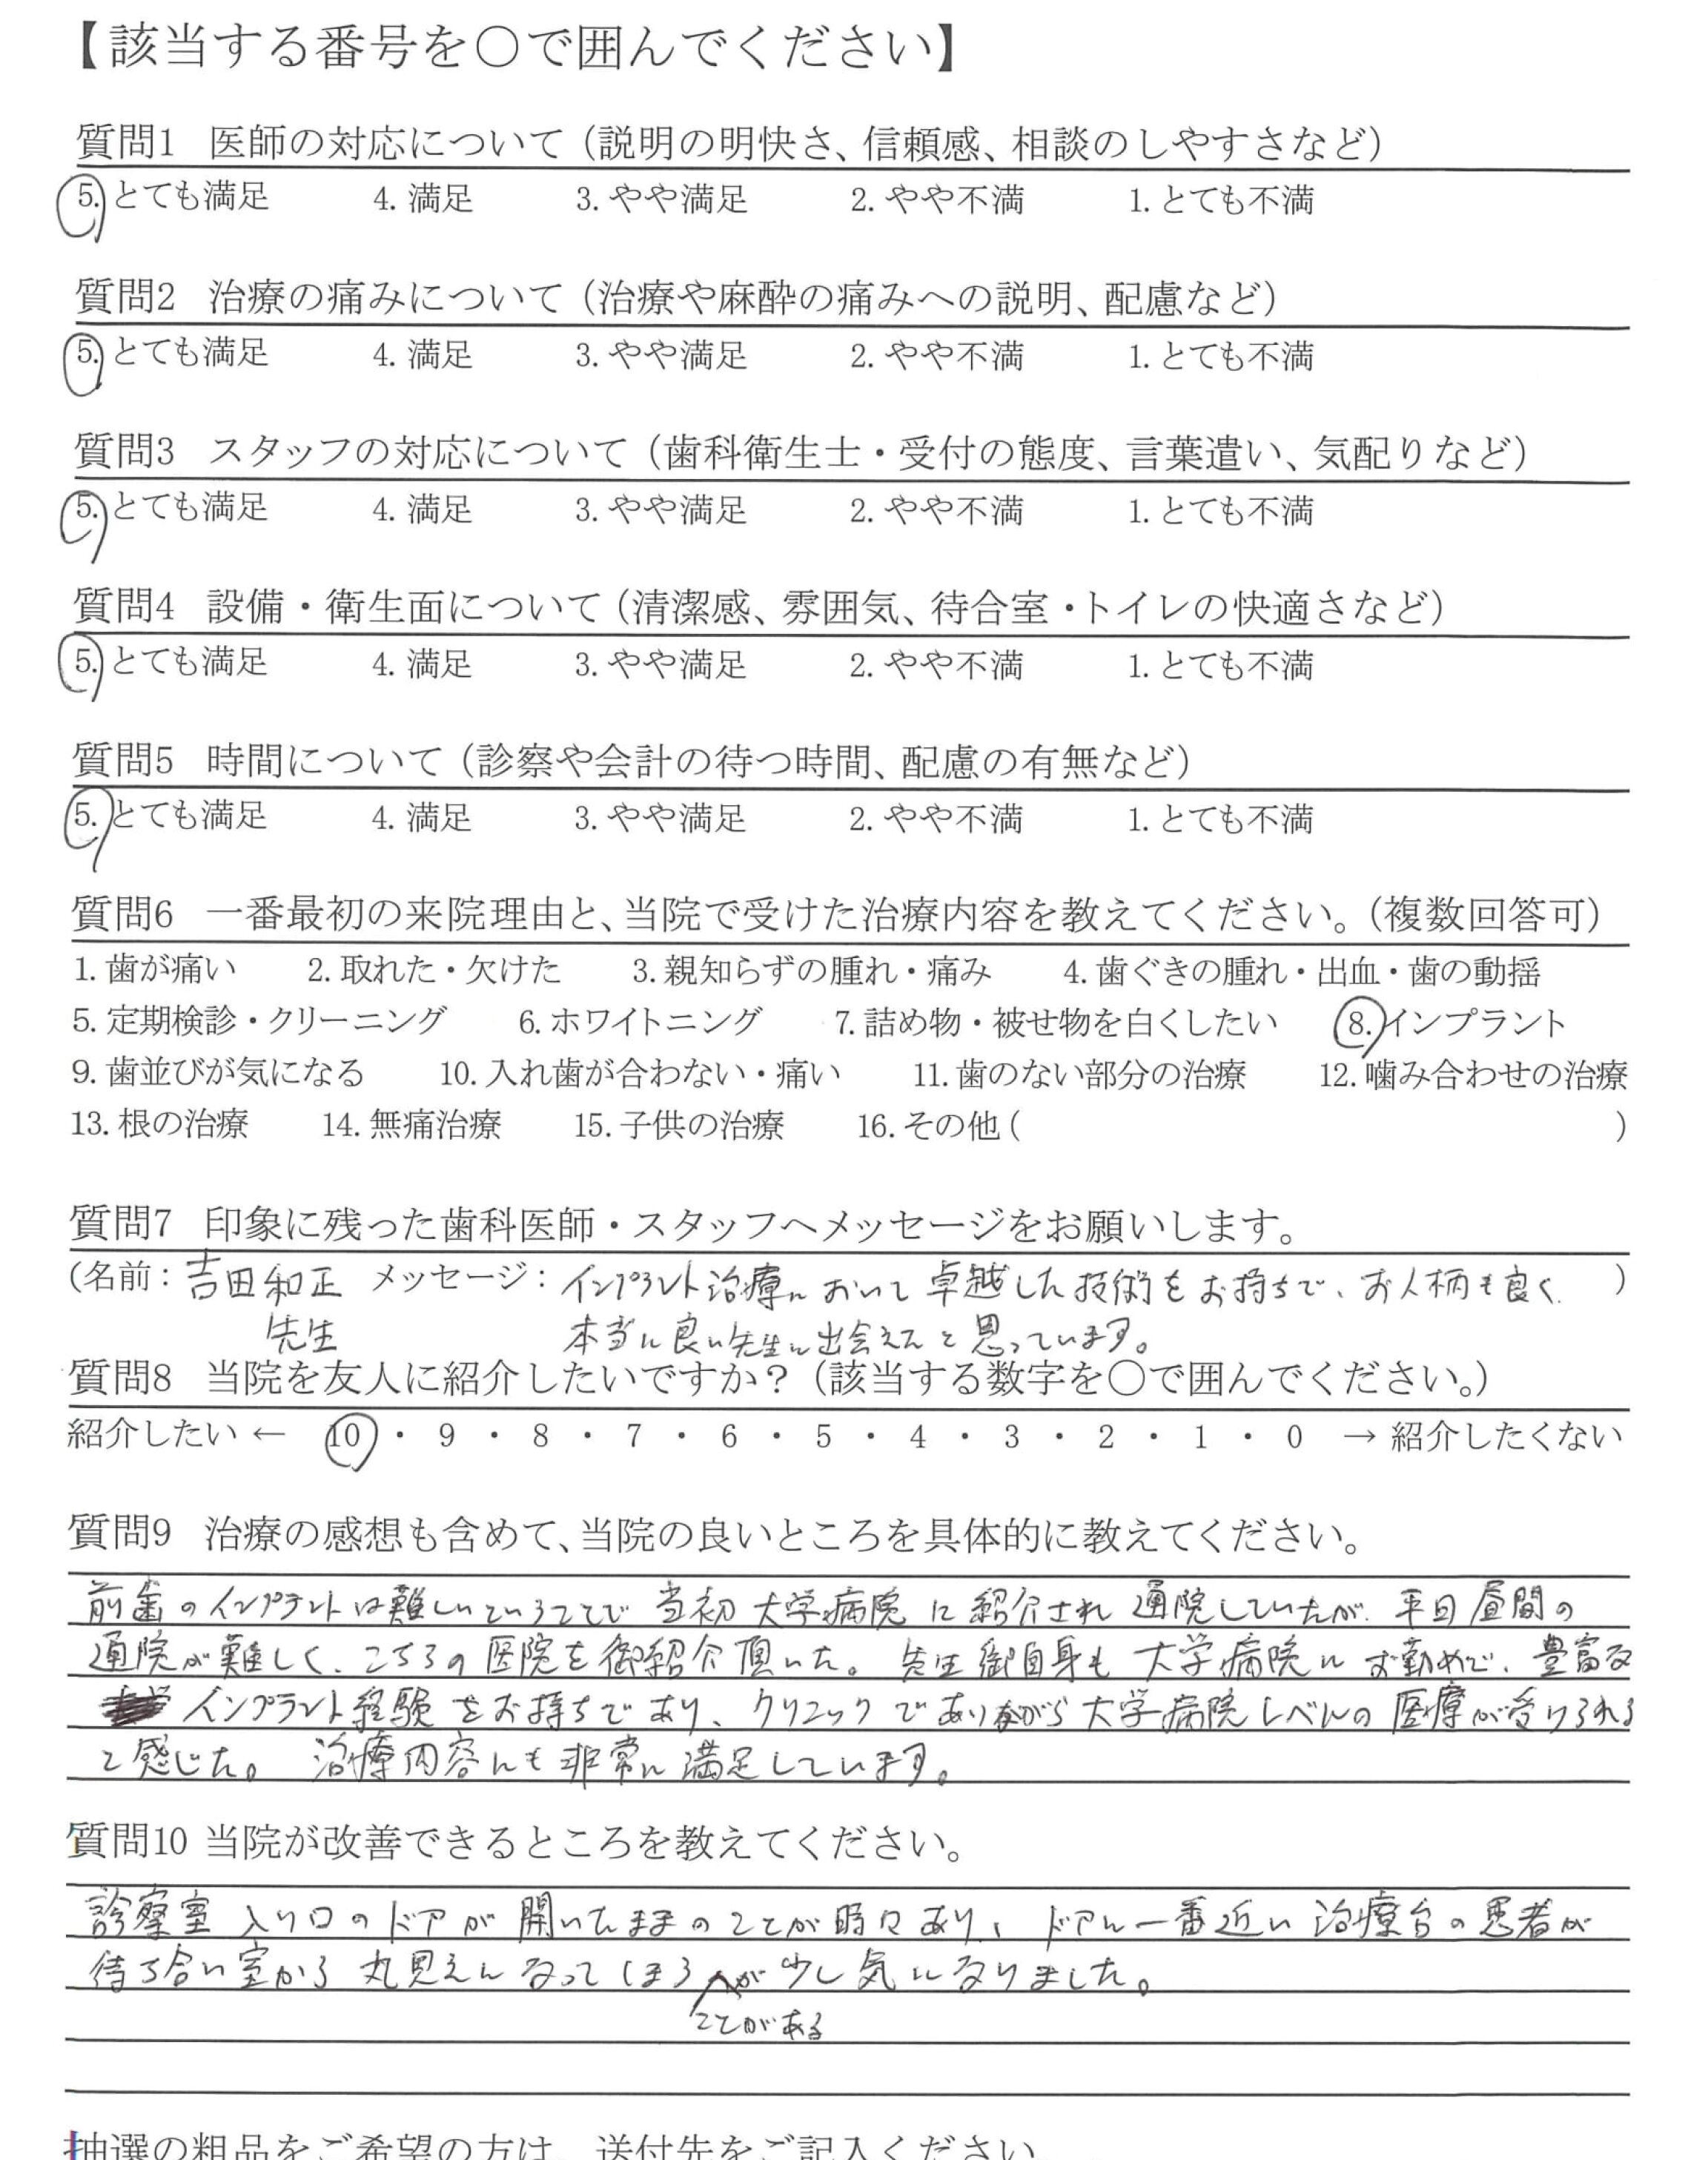 【該当する番号を〇で囲んでください】
質問1 医師の対応について（説明の明快さ、信頼感、相談のしやすさなど）
5. とても満足 4. 満足 3. やや満足 2. やや不満 1. とても不満
質問2 治療の痛みについて（治療や麻酔の痛みへの説明、配慮など）
5. とても満足 4. 満足 3. やや満足 2. やや不満 1. とても不満
質問3 スタッフの対応について（歯科衛生士・受付の態度、言葉遣い、気配りなど）
5. とても満足 4. 満足 3. やや満足 2. やや不満 1. とても不満
質問4 設備・衛生面について（清潔感、雰囲気、待合室・トイレの快適さなど）
5. とても満足 4. 満足 3. やや満足 2. やや不満 1. とても不満
質問5 時間について（診察や会計の待つ時間、配慮の有無など）
5. とても満足 4. 満足 3. やや満足 2. やや不満 1. とても不満
質問6 一番最初の来院理由と、当院で受けた治療内容を教えてください。（複数回答可）
1. 歯が痛い 2. 取れた・欠けた 3. 親知らずの腫れ・痛み 4. 歯ぐきの腫れ・出血・歯の動揺
5. 定期検診・クリーニング 6. ホワイトニング 7. 詰め物・被せ物を白くしたい 8. インプラント
9. 歯並びが気になる 10. 入れ歯が合わない・痛い 11. 歯のない部分の治療 12. 噛み合わせの治療
13. 根の治療 14. 無痛治療 15. 子供の治療 16. その他（ ）
質問7 印象に残った歯科医師・スタッフへメッセージをお願いします。
（名前：吉田和正 メッセージ：インプラント治療において卓越した技術をお持ちで、お人柄も良く ）
先生 本当に良い先生に出会えたと思っています。
質問8 当院を友人に紹介したいですか？（該当する数字を〇で囲んでください。）
紹介したい ← 10 ・ 9 ・ 8 ・ 7 ・ 6 ・ 5 ・ 4 ・ 3 ・ 2 ・ 1 ・ 0 → 紹介したくない
質問9 治療の感想も含めて、当院の良いところを具体的に教えてください。
前歯のインプラントは難しいということで 当初 大学病院に紹介され通院していたが、平日昼間の
通院が難しく、こちらの医院を御紹介頂いた。先生御自身も大学病院にお勤めで、豊富な
インプラント経験をお持ちであり、クリニックでありながら大学病院レベルの医療が受けられる
と感じた。治療内容にも非常に満足しています。
質問10 当院が改善できるところを教えてください。
診察室入り口のドアが開いたままのことが時々あり、ドアに一番近い治療台の患者が
待ち合い室から丸見えになってしまうことがあるが少し気になりました。
抽選の粗品をご希望の方は、送付先をご記入ください。